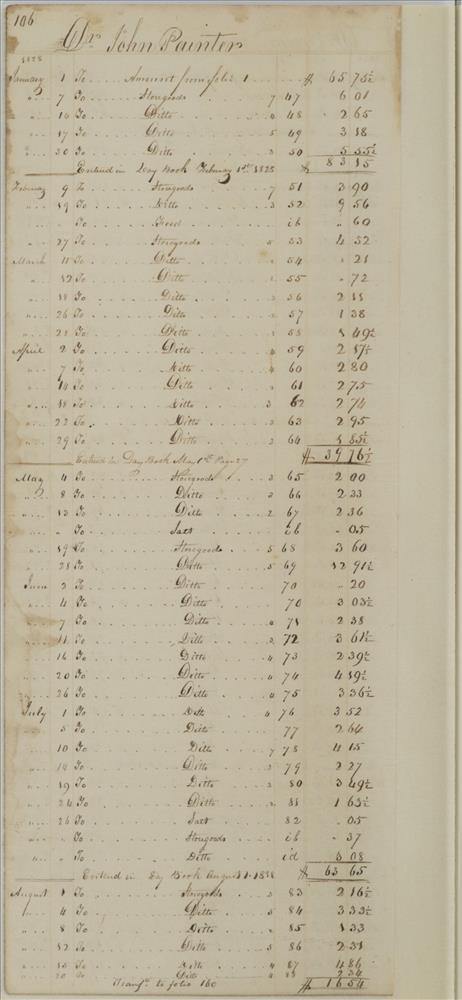 106
Dr John Painter
1828
January 1 To Amount from folio 1 $ 65 75½
" 7 To Storegoods 7 47 6 01
" 14 To Ditto 4 48 2 65
" 17 To Ditto 5 49 3 18
" 30 To Ditto 3 50 5 55½
Entered in Day Book February 1st 1828 $ 83 15
February 9 To Storegoods 7 51 3 90
" 19 To Ditto 3 52 9 56
" " To ib " 60
" 27 To Storegoods 5 53 4 52
March 11 To Ditto 2 54 " 21
" 12 To Ditto 2 55 " 72
" 18 To Ditto 2 56 2 11
" 26 To Ditto 2 57 1 38
" 28 To Ditto 2 58 1 49½
April 2 To Ditto 4 59 2 17½
" 7 To Ditto 4 60 2 80
" 14 To Ditto 3 61 2 75
" 18 To Ditto 3 62 2 74
" 22 To Ditto 2 63 2 95
" 29 To Ditto 3 64 1 85½
Entered in Day Book May 1st Page 27 $ 39 76½
May 4 To Storegoods 3 65 2 00
" 8 To Ditto 3 66 2 33
" 13 To Ditto 2 67 2 36
" " To Salt ib " 05
" 19 To Storegoods 5 68 3 60
" 28 To Ditto 5 69 12 91½
June 2 To Ditto 70 " 20
" 4 To Ditto 70 3 03½
" 7 To Ditto 4 71 2 38
" 11 To Ditto 3 72 3 61½
" 16 To Ditto 4 73 2 39½
" 20 To Ditto 4 74 4 19½
" 26 To Ditto 4 75 3 36½
July 1 To Ditto 4 76 3 52
" 5 To Ditto 77 2 64
" 10 To Ditto 7 78 4 15
" 14 To Ditto 3 79 2 27
" 19 To Ditto 3 80 3 49½
" 24 To Ditto 3 81 1 63½
" 26 To Salt 82 " 05
" " To Storegoods ib " 37
" " To Ditto id 3 08
Entered in Day Book August 1 1828 $ 63 65
August 1 To Storegoods 3 83 2 16½
" 4 To Ditto 5 84 3 33½
" 8 To Ditto 2 85 1 33
" 12 To Ditto 3 86 2 31
" To Ditto 4 87 4 86
" 20 To Ditto 4 88 2 34
Transfd to folio 160 $ 16 54